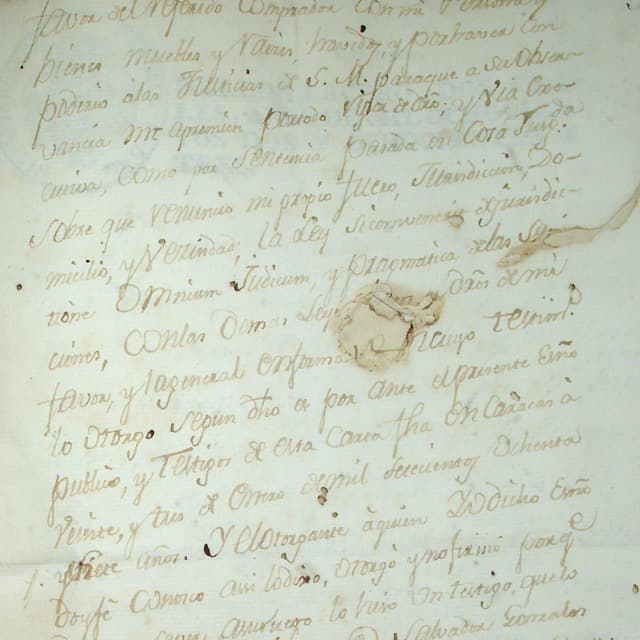 favor del referido Comprador con mi Persona, y
bienes muebles y raises havidos, y por haver con
poderio alas Justicias de S. M. para que a su obser-
vancia me apremien por todo rigor de dro. y via exe-
cutiva, como por sentencia pasada en Cosa Jusgada
sobre que renuncio mi propio fuero, Jurisdiccion, Do-
micilio, y Vecindad, la Ley siconvenerit de jurisdic-
tione Omnium Judicum, y pragmatica delas Sumi-
ciones, con las demas Leyes y dros de mi
favor, y la general en forma tiempo testim.º
lo otorgo segun dho es por ante el presente Essno
publico, y Testigos de esta Carta fha en Caracas à
veinte, y tres de Enero de mil setecientos ochenta
y siete años. Y el otorgante à quien Yo dicho Essno
doy fè conosco asi lo dixo, otorgò y no firmò porq.e
a su ruego lo hiso un testigo, que lo
Dn Salvador Gonzales